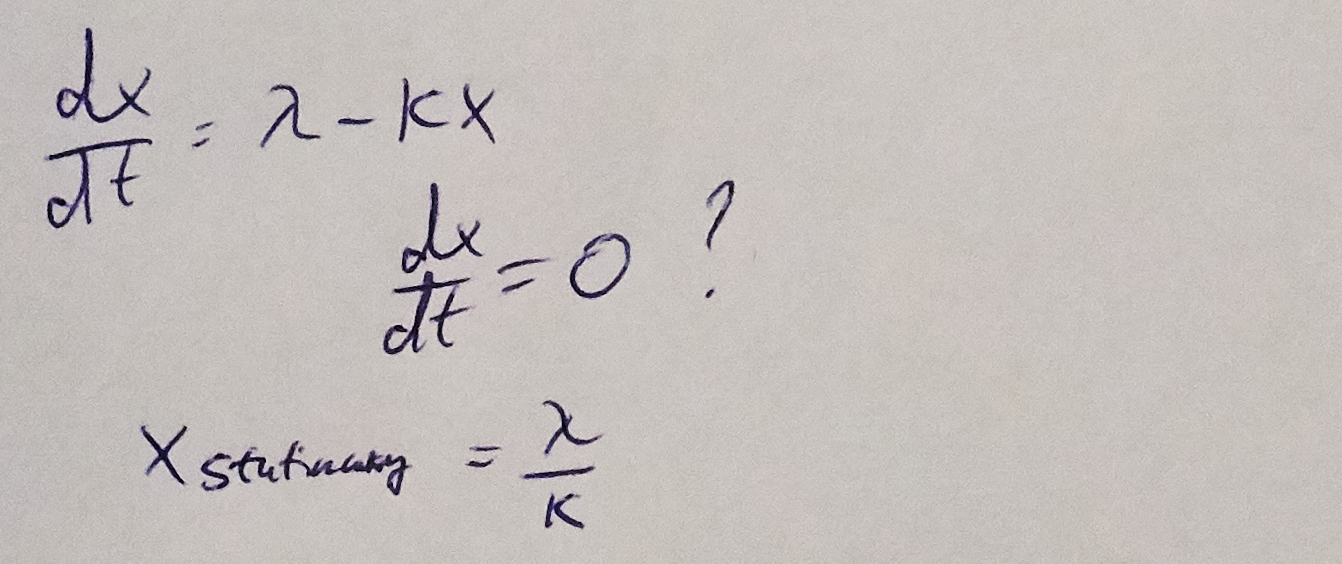 dx/dt = λ - kx
dx/dt = 0 ?
x stationary = λ/k